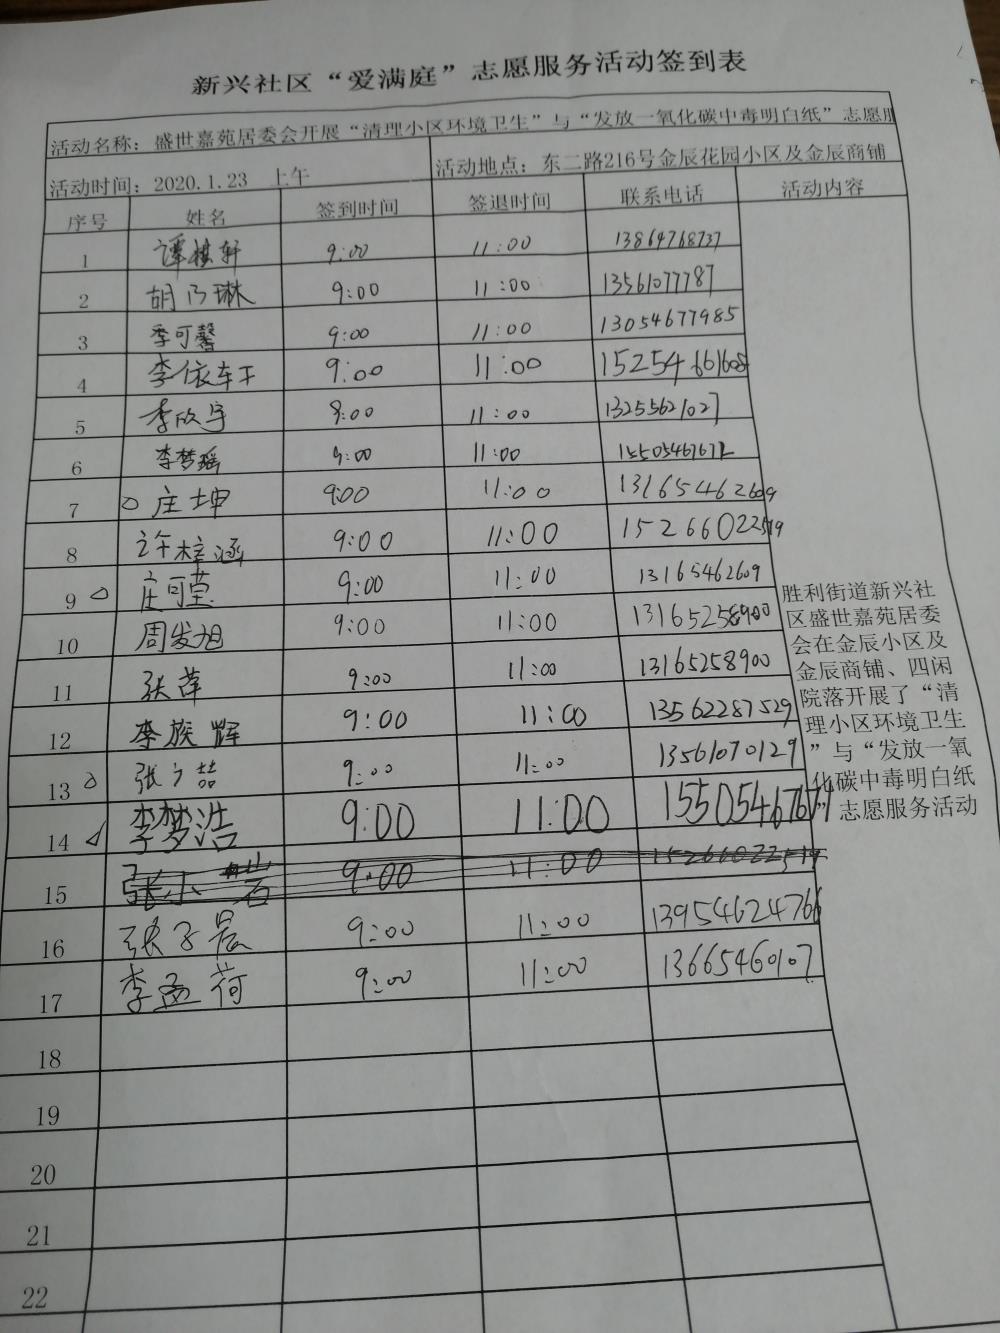 新兴社区“爱满庭”志愿服务活动签到表
活动名称：盛世嘉苑居委会开展“清理小区环境卫生”与“发放一氧化碳中毒明白纸”志愿服
活动时间：2020.1.23 上午 活动地点：东二路216号金辰花园小区及金辰商铺
序号 姓名 签到时间 签退时间 联系电话 活动内容
1 谭棋轩 9:00 11:00 13864768737
2 胡乃琳 9:00 11:00 13561077787
3 季可馨 9:00 11:00 13054677985
4 李依车干 9:00 11:00 15254661608
5 李欣宇 9:00 11:00 13255621027
6 李梦瑶 9:00 11:00 15505467672
7 庄坤 9:00 11:00 13165462609
8 许梓涵 9:00 11:00 15266022519
9 庄可莹 9:00 11:00 13165462609
10 周发旭 9:00 11:00 13165258900
11 张萍 9:00 11:00 13165258900
12 李族辉 9:00 11:00 13562287529
13 张广喆 9:00 11:00 13561070129
14 李梦浩 9:00 11:00 15505467671
15 张小岩 9:00 11:00 15266022519
16 张子晨 9:00 11:00 13954624766
17 李孟荷 9:00 11:00 13665460107
18
19
20
21
22
胜利街道新兴社
区盛世嘉苑居委
会在金辰小区及
金辰商铺、四闲
院落开展了“清
理小区环境卫生
”与“发放一氧
化碳中毒明白纸
”志愿服务活动